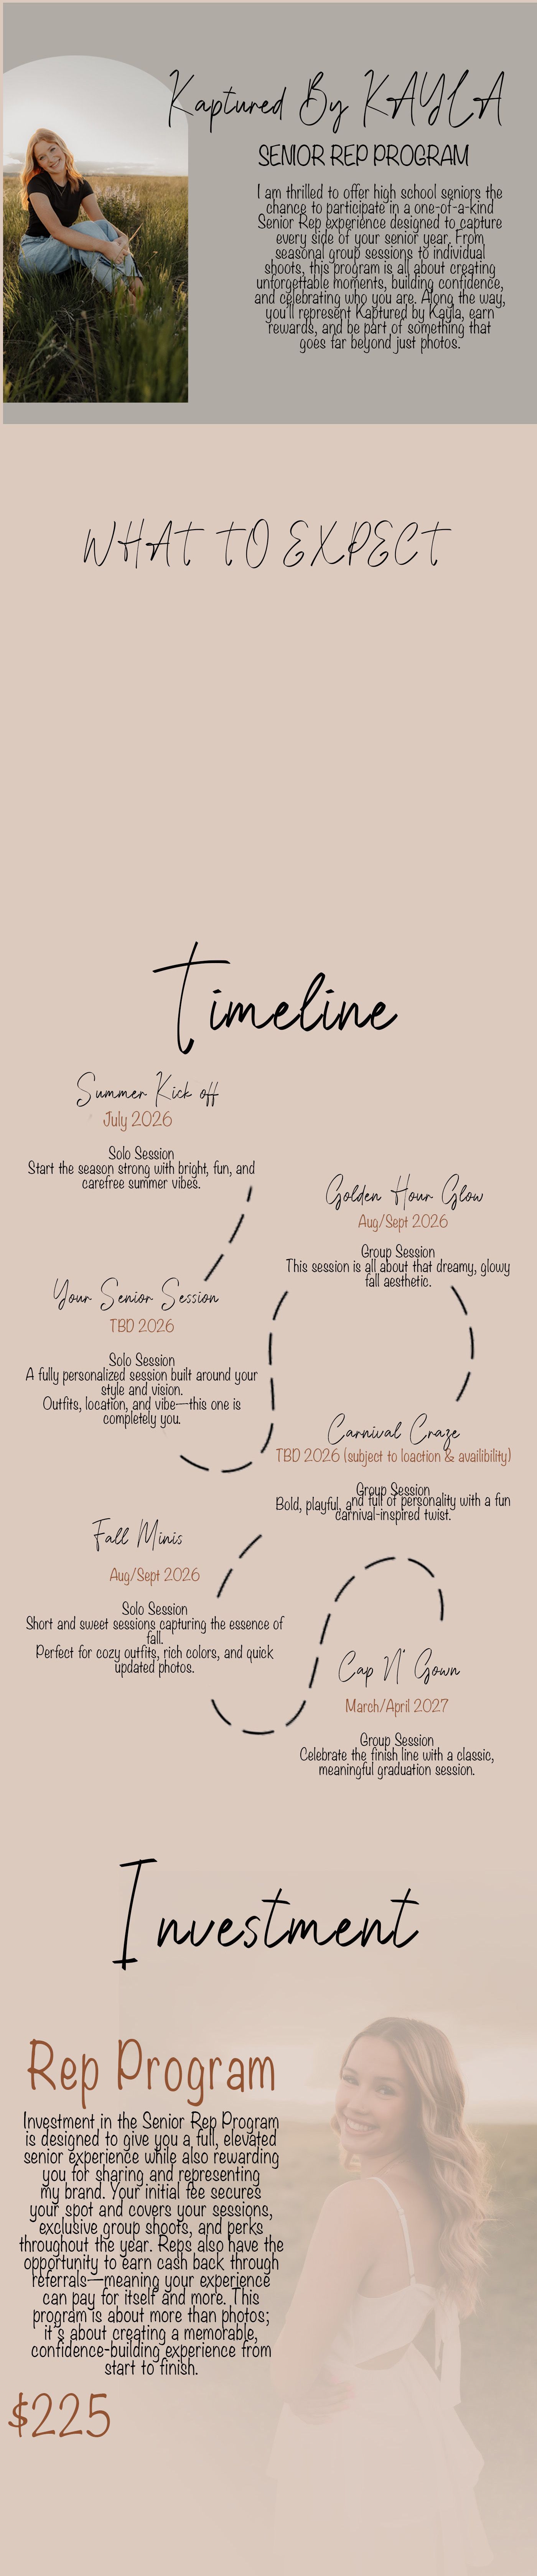 Kaptured By KAYLA
SENIOR REP PROGRAM
I am thrilled to offer high school seniors the
chance to participate in a one-of-a-kind
Senior Rep experience designed to capture
every side of your senior year. From
seasonal group sessions to individual
shoots, this program is all about creating
unforgettable moments, building confidence,
and celebrating who you are. Along the way,
you'll represent Kaptured by Kayla, earn
rewards, and be part of something that
goes far beyond just photos.
WHAT TO EXPECT
Timeline
Summer Kick off
July 2026
Solo Session
Start the season strong with bright, fun, and
carefree summer vibes.
Golden Hour Glow
Aug/Sept 2026
Group Session
This session is all about that dreamy, glowy
fall aesthetic.
Your Senior Session
TBD 2026
Solo Session
A fully personalized session built around your
style and vision.
Outfits, location, and vibe—this one is
completely you.
Carnival Craze
TBD 2026 (subject to loaction & availibility)
Group Session
Bold, playful, and full of personality with a fun
carnival-inspired twist.
Fall Minis
Aug/Sept 2026
Solo Session
Short and sweet sessions capturing the essence of
fall.
Perfect for cozy outfits, rich colors, and quick
updated photos.
Cap N' Gown
March/April 2027
Group Session
Celebrate the finish line with a classic,
meaningful graduation session.
Investment
Rep Program
Investment in the Senior Rep Program
is designed to give you a full, elevated
senior experience while also rewarding
you for sharing and representing
my brand. Your initial fee secures
your spot and covers your sessions,
exclusive group shoots, and perks
throughout the year. Reps also have the
opportunity to earn cash back through
referrals—meaning your experience
can pay for itself and more. This
program is about more than photos;
it's about creating a memorable,
confidence-building experience from
start to finish.
$225